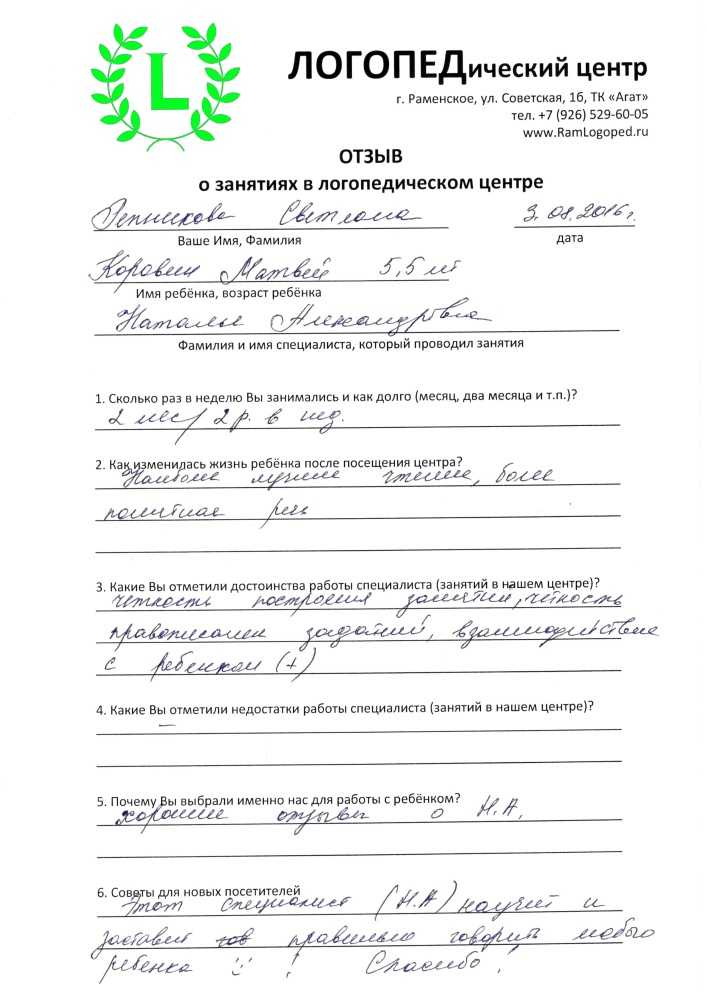 L
ЛОГОПЕДический центр
г. Раменское, ул. Советская, 1б, ТК «Агат»
тел. +7 (926) 529-60-05
www.RamLogoped.ru
ОТЗЫВ
о занятиях в логопедическом центре
Репникова Светлана 3.08.2016г.
Ваше Имя, Фамилия дата
Коровин Матвей 5,5 лет
Имя ребёнка, возраст ребёнка
Наталья Александровна
Фамилия и имя специалиста, который проводил занятия
1. Сколько раз в неделю Вы занимались и как долго (месяц, два месяца и т.п.)?
2 мес/ 2 р. в нед.
2. Как изменилась жизнь ребёнка после посещения центра?
чтение, более
понятная речь
3. Какие Вы отметили достоинства работы специалиста (занятий в нашем центре)?
четкость построения занятий, чёткость
заданий, взаимодействие
с ребенком (+)
4. Какие Вы отметили недостатки работы специалиста (занятий в нашем центре)?
–
5. Почему Вы выбрали именно нас для работы с ребёнком?
хорошие отзывы о Н.А.
6. Советы для новых посетителей
Этот специалист (Н.А) научит и
заставит правильно говорить любого
ребенка ! Спасибо!